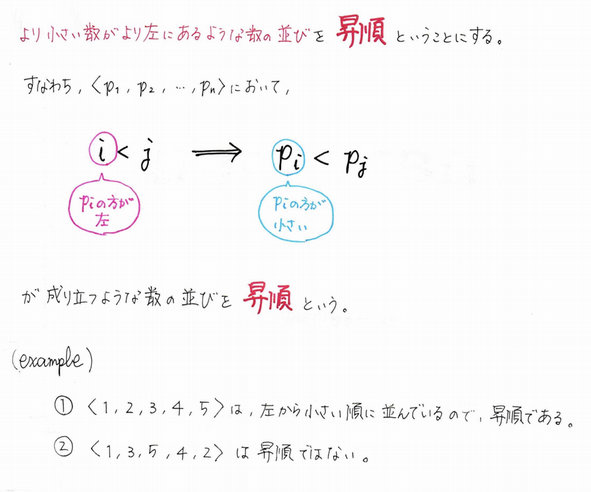 より小さい数がより左にあるような数の並びを昇順ということにする。
すなわち,〈p1, p2, …, pn〉において,
i < j ⟹ pi < pj
piの方が
左
piの方が
小さい
が成り立つような数の並びを昇順という。
(example)
① 〈1, 2, 3, 4, 5〉は,左から小さい順に並んでいるので,昇順である。
② 〈1, 3, 5, 4, 2〉は昇順ではない。